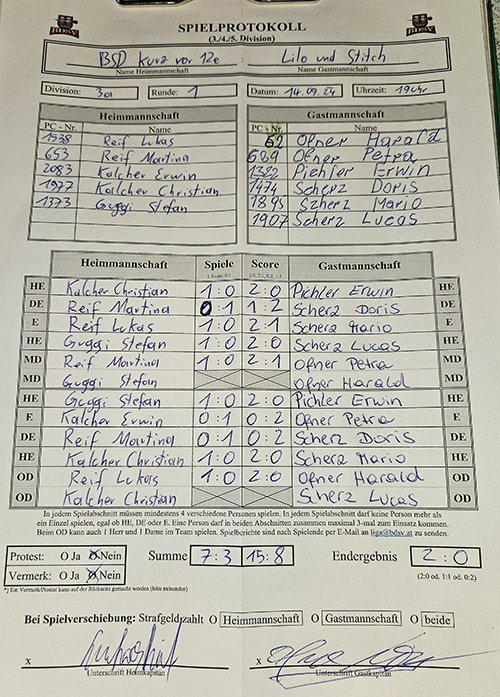 BDSV
SPIELPROTOKOLL
BDSV
(3./4./5. Division)
BSD Kurz vor 12e Lilo und Stitch
Name Heimmannschaft Name Gastmannschaft
Division: 3a1 Runde: 1 Datum: 14.09.24 Uhrzeit: 19 Uhr
Heimmannschaft Gastmannschaft
PC - Nr. Name PC - Nr. Name
1538 Reif Lukas 62 Ofner Harald
653 Reif Martina 689 Ofner Petra
2083 Kalcher Erwin 1322 Pichler Erwin
1977 Kalcher Christian 1474 Scherz Doris
1373 Guggi Stefan 1895 Scherz Mario
1907 Scherz Lucas
Heimmannschaft Spiele Score Gastmannschaft
HE Kalcher Christian 1:0 2:0 Pichler Erwin HE
DE Reif Martina 0:1 1:2 Scherz Doris DE
E Reif Lukas 1:0 2:1 Scherz Mario E
HE Guggi Stefan 1:0 2:0 Scherz Lucas HE
MD Reif Martina 1:0 2:1 Ofner Petra MD
MD Guggi Stefan Ofner Harald MD
HE Guggi Stefan 1:0 2:0 Pichler Erwin HE
E Kalcher Erwin 0:1 0:2 Ofner Petra E
DE Reif Martina 0:1 0:2 Scherz Doris DE
HE Kalcher Christian 1:0 2:0 Scherz Mario HE
OD Reif Lukas 1:0 2:0 Ofner Harald OD
OD Kalcher Christian Scherz Lucas OD
In jedem Spielabschnitt müssen mindestens 4 verschiedene Personen spielen. In jedem Spielabschnitt darf keine Person mehr als
ein Einzel spielen, egal ob HE, DE oder E. Eine Person darf in beiden Abschnitten zusammen maximal 3-mal zum Einsatz kommen.
Beim OD kann auch 1 Herr und 1 Dame im Team spielen. Spielberichte sind nach Spielende per E-Mail an liga@bdsv.at zu senden.
Protest: O Ja O Nein Summe 7:3 15:8 Endergebnis 2:0
Vermerk: O Ja O Nein (2:0 od. 1:1 od. 0:2)
*) Ein Vermerk/Protest kann auf der Rückseite gemacht werden (bitte mitsenden)
Bei Spielverschiebung: Strafgeld zahlt O Heimmannschaft O Gastmannschaft O beide
x x
Unterschrift Heimkapitän Unterschrift Gastkapitän